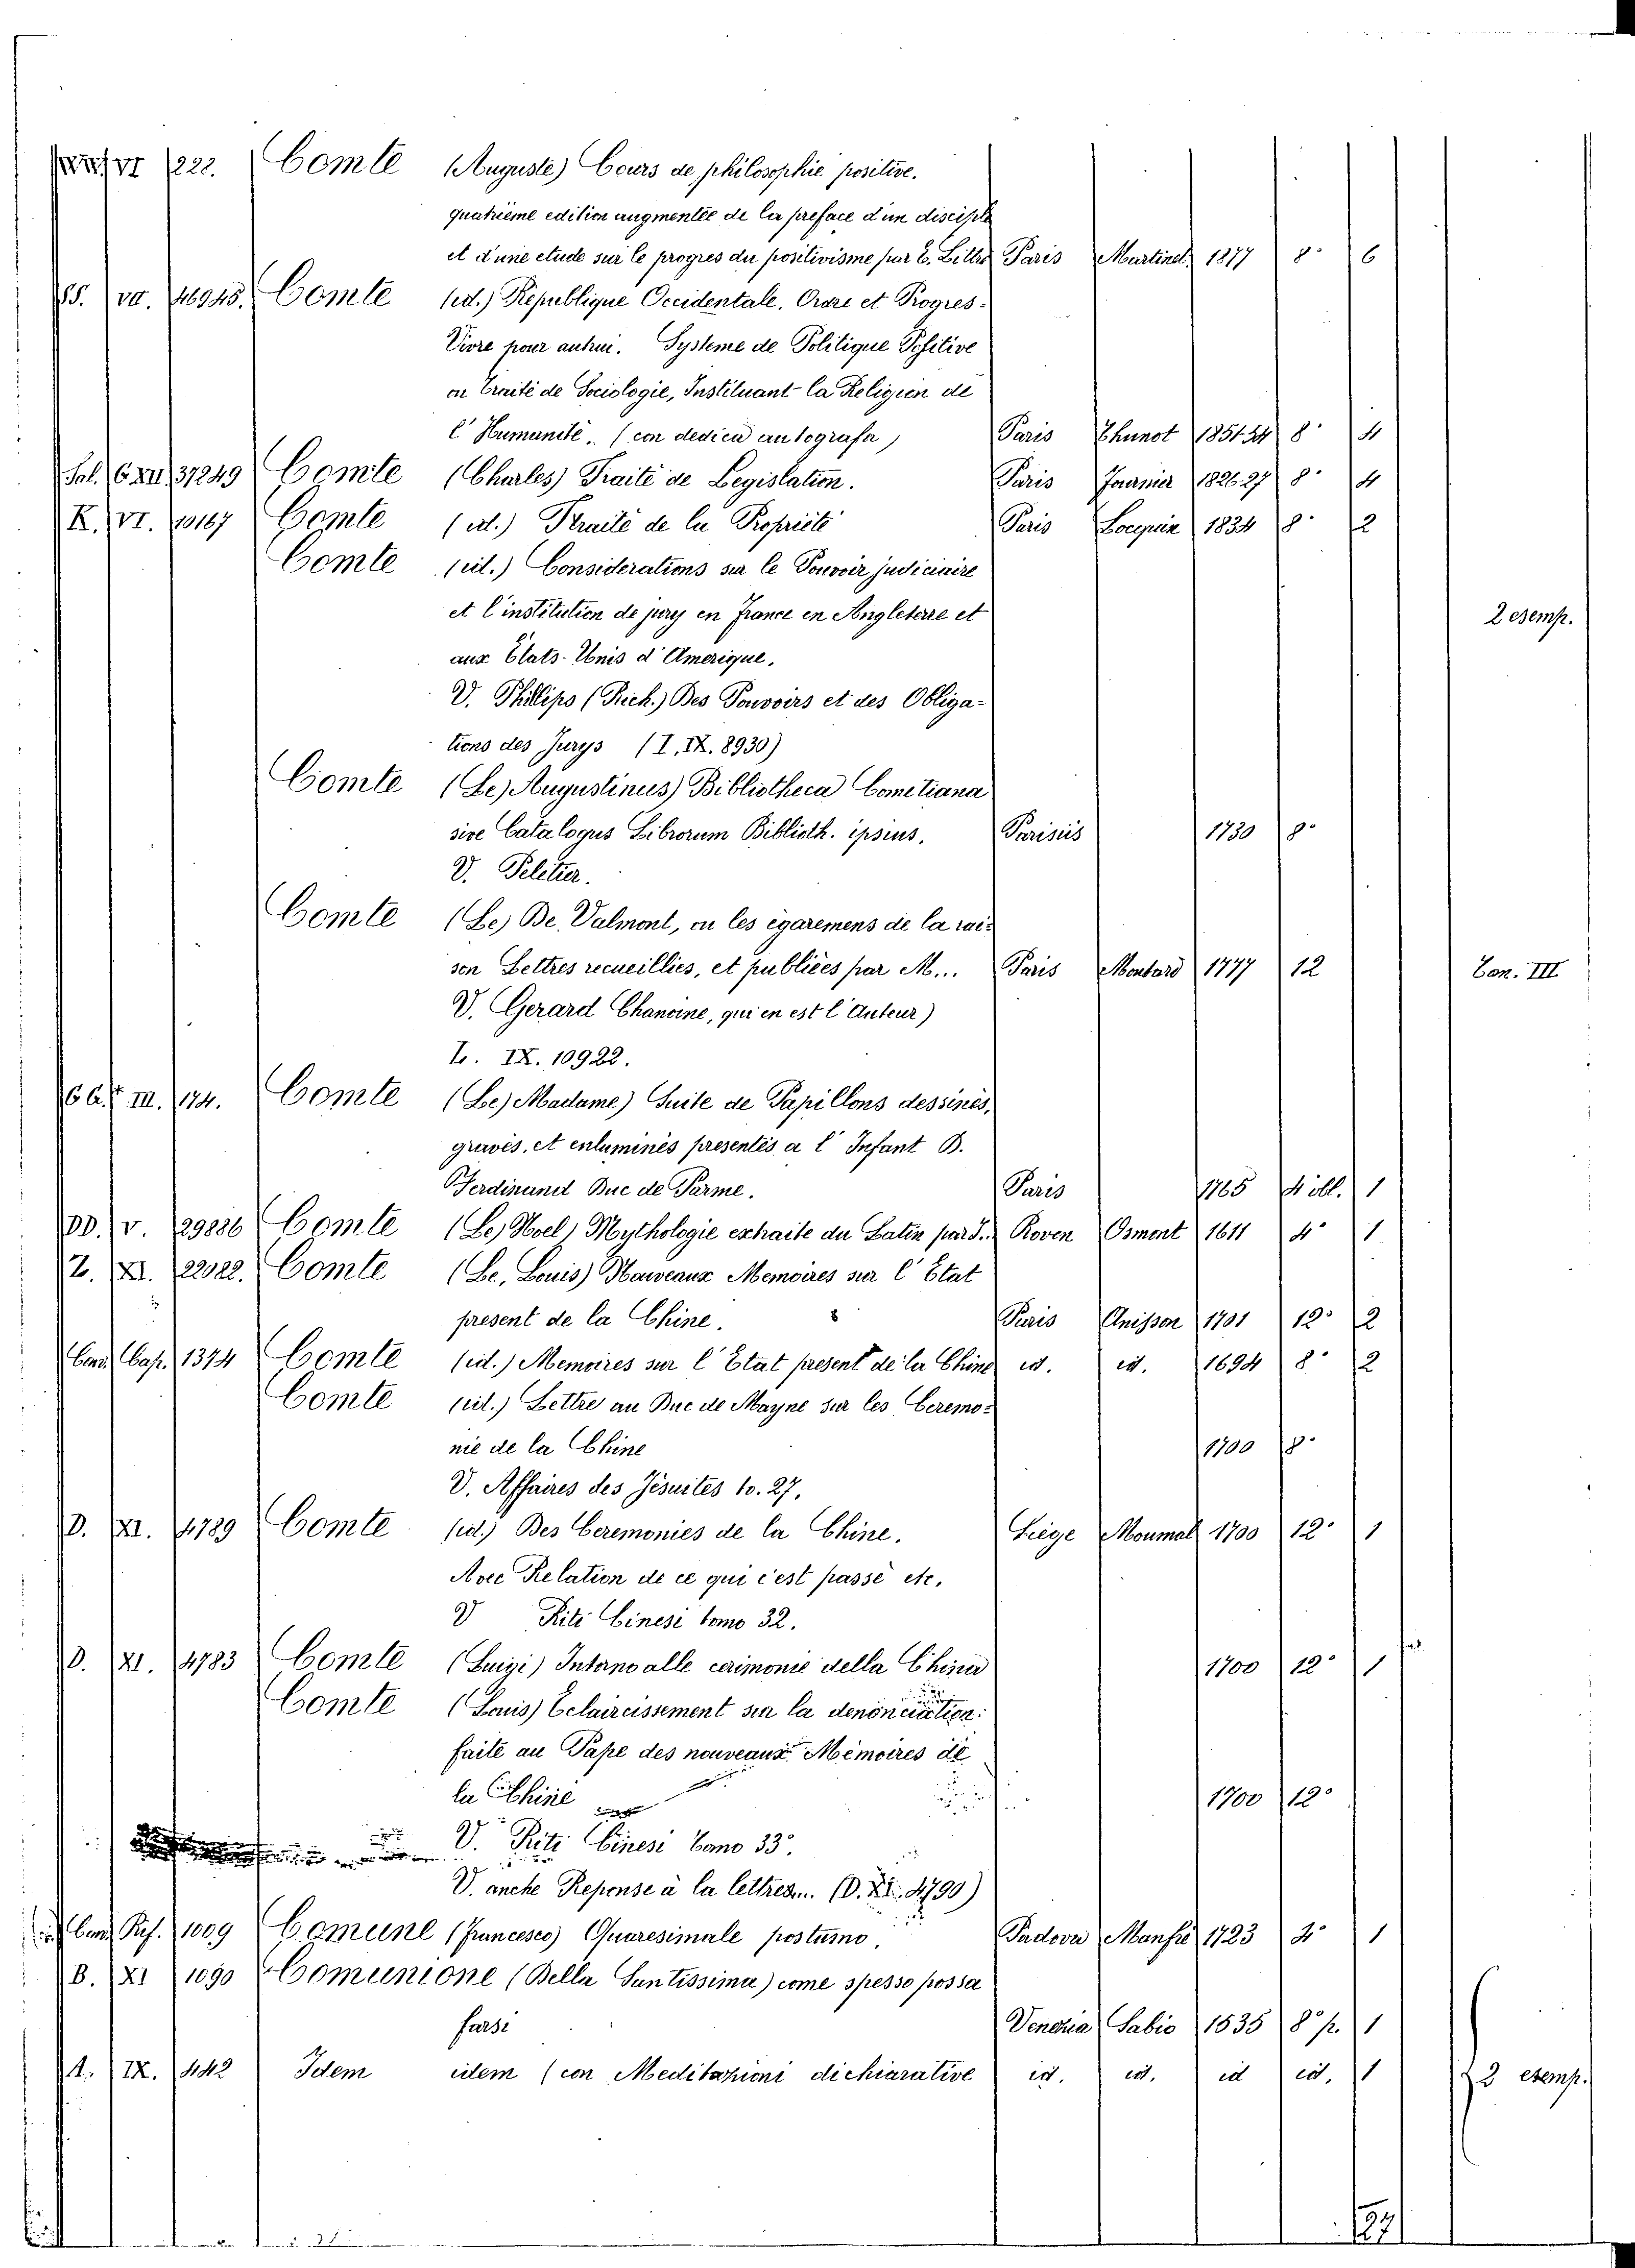 VI 222. Comte (Auguste) Cours de philosophie positive.
quatrieme edition augmentée de la preface d'un disciple
et d'une etude sur le progres du positivisme par E. Littre Paris Martinet 1877 8° 6
SS. VII. 46945. Comte (id.) République Occidentale. Ordre et Progres-
Vivre pour autrui. Systeme de Politique Positive
ou Traité de Sociologie, Instituant la Religion de
l'Humanité. (con dedica autografa) Paris Thunot 1851-54 8° 4
Sal. 6 XII 37249 Comte (Charles) Traité de Legislation. Paris Fournier 1826-27 8° 4
K. VI. 10167 Comte (id.) Traité de la Propriété Paris Locquin 1834 8° 2
Comte (id.) Considerations sur le Pouvoir judiciaire
et l'institution de jury en France en Angleterre et 2 esemp.
aux Etats-Unis d'Amerique.
V. Phillips (Rich.) Des Pouvoirs et des Obliga-
tions des Jurys (I. IX. 8930)
Comte (Le) Augustinus) Bibliotheca Cometiana
sive Catalogus Librorum Biblioth. ipsius. Parisiis 1730 8°
V. Peletier.
Comte (Le) De Valmont, ou les égaremens de la rai-
son Lettres recueillies, et publiées par M... Paris Moutard 1777 12 Can. III
V. Gerard Chanoine, qui en est l'Auteur)
L. IX. 10922.
66. III. 174. Comte (Le) Madame) Suite de Papillons dessinés,
gravés, et enluminés presentés a l'Infant D.
Ferdinand Duc de Parme. Paris 1765 4° obl. 1
DD. V. 29886 Comte (Le) Noel) Mythologie extraite du Latin par J. Roven Osmont 1611 4° 1
Z. XI. 22022. Comte (Le, Louis) Nouveaux Memoires sur l'Etat
present de la Chine. Paris Anisson 1701 12° 2
Cand. Cap. 1374 Comte (id.) Memoires sur l'Etat present de la Chine id. id. 1694 8° 2
Comte (id.) Lettre au Duc de Mayne sur les Ceremo-
nie de la Chine 1700 8°
V. Affaires des Jésuites to. 27.
D. XI. 4789 Comte (id.) Des Ceremonies de la Chine. Liége Moumal 1700 12° 1
Avec Relation de ce qui c'est passé etc.
V Riti Cinesi tomo 32.
D. XI. 4783 Comte (Luigi) Intorno alle cerimonie della China 1700 12° 1
Comte (Louis) Eclaircissement sur la denonciation
faite au Pape des nouveaux Mémoires de
la Chine 1700 12°
V. Riti Cinesi Tomo 33°.
V. anche Reponse à la lettre... (D. XI. 4790)
Cand. Rif. 1009 Comune (Francesco) Quaresimale postumo. Padova Manfrè 1723 4° 1
B. XI 1090 Comunione (Della Santissima) come spesso possa
farsi Venezia Sabio 1535 8° p. 1
A. IX. 442 Idem idem (con Meditazioni dichiarative id. id. id id. 1 2 esemp.
27